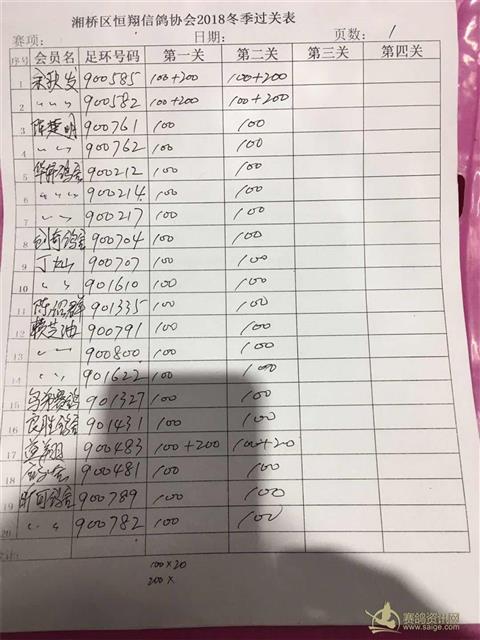 湘桥区恒翔信鸽协会2018冬季过关表
赛项: 日期: 页数: 1
序号 会员名 足环号码 第一关 第二关 第三关 第四关
1 900585 100+200 100+200
2 〃 〃 900582 100+200 100+200
3 陈楚明 900761 100 100
4 〃 〃 900762 100 100
5 900212 100 100
6 〃 〃 〃 900214 100 100
7 〃 〃 900217 100 100
8 900704 100 100
9 丁灿 900707 100 100
10 〃 〃 901610 100 100
11 901335 100 100
12 900791 100 100
13 〃 〃 900800 100 100
14 〃 〃 901622 100 100
15 901327 100 100
16 901431 100 100
17 900483 100+200 100+20
18 900481 100 100
19 900789 100 100
20 〃 〃 900782 100 100
100×20
200×
赛鸽资讯网
www.saige.com